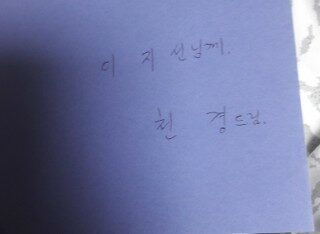 이 지 선님께.
천 경드림.